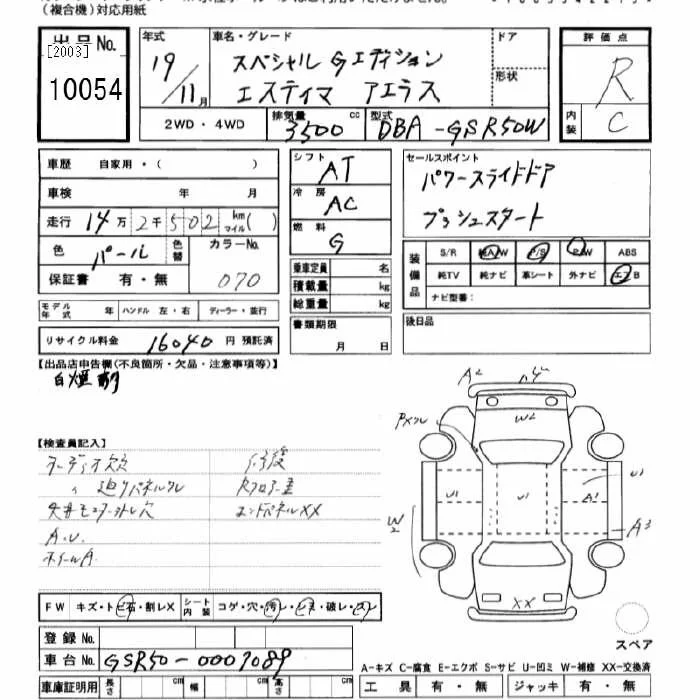 (複合機)対応用紙
出品No.
[2003]
10054
年式 19/11月
車名・グレード スペシャル Gエディション
エスティマ アエラス
ドア
形状
2WD・4WD
排気量 3500 cc
型式 DBA-GSR50W
評価点
R
内装 C
車歴 自家用・( )
車検 年 月
走行 14万2千502 km マイル( )
色 パール
色替
カラーNo. 070
保証書 有・無
シフト AT
冷房 AC
燃料 G
乗車定員 名
積載量 kg
総重量 kg
書類期限
月 日
セールスポイント
パワースライドドア
プッシュスタート
装備品
S/R 純A/W P/S P/W ABS
純TV 純ナビ 革シート 外ナビ エアB
ナビ型番:
後日品
モデル年式 年 ハンドル 左・右 ディーラー・並行
リサイクル料金 16040 円 預託済
【出品店申告欄(不良箇所・欠品・注意事項等)】
白煙有
【検査員記入】
オーディオ欠 修復
〃 廻りパネルワレ
天井モニター外し穴 エンドパネルXX
A.U.
ホイールA
A2
W2
U1 U1 A1 U1
W2
A3
XX
FW キズ・トビ石・割レX シート内装 コゲ・穴・汚レ・シミ・破レ・スレ
登録No.
車台No. GSR50-0007089
車庫証明用 長さ cm 幅 cm 高さ cm
スペア
A-キズ C-腐食 E-エクボ S-サビ U-凹ミ W-補修 XX-交換済
工具 有・無 ジャッキ 有・無